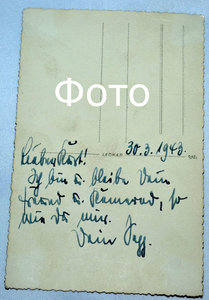 Фото
LEONAR
30.3.1943.
Lieber Kurt!
Ich bin u. bleibe Dein
Freund u. Kamerad, so
wie Du mir.
Dein